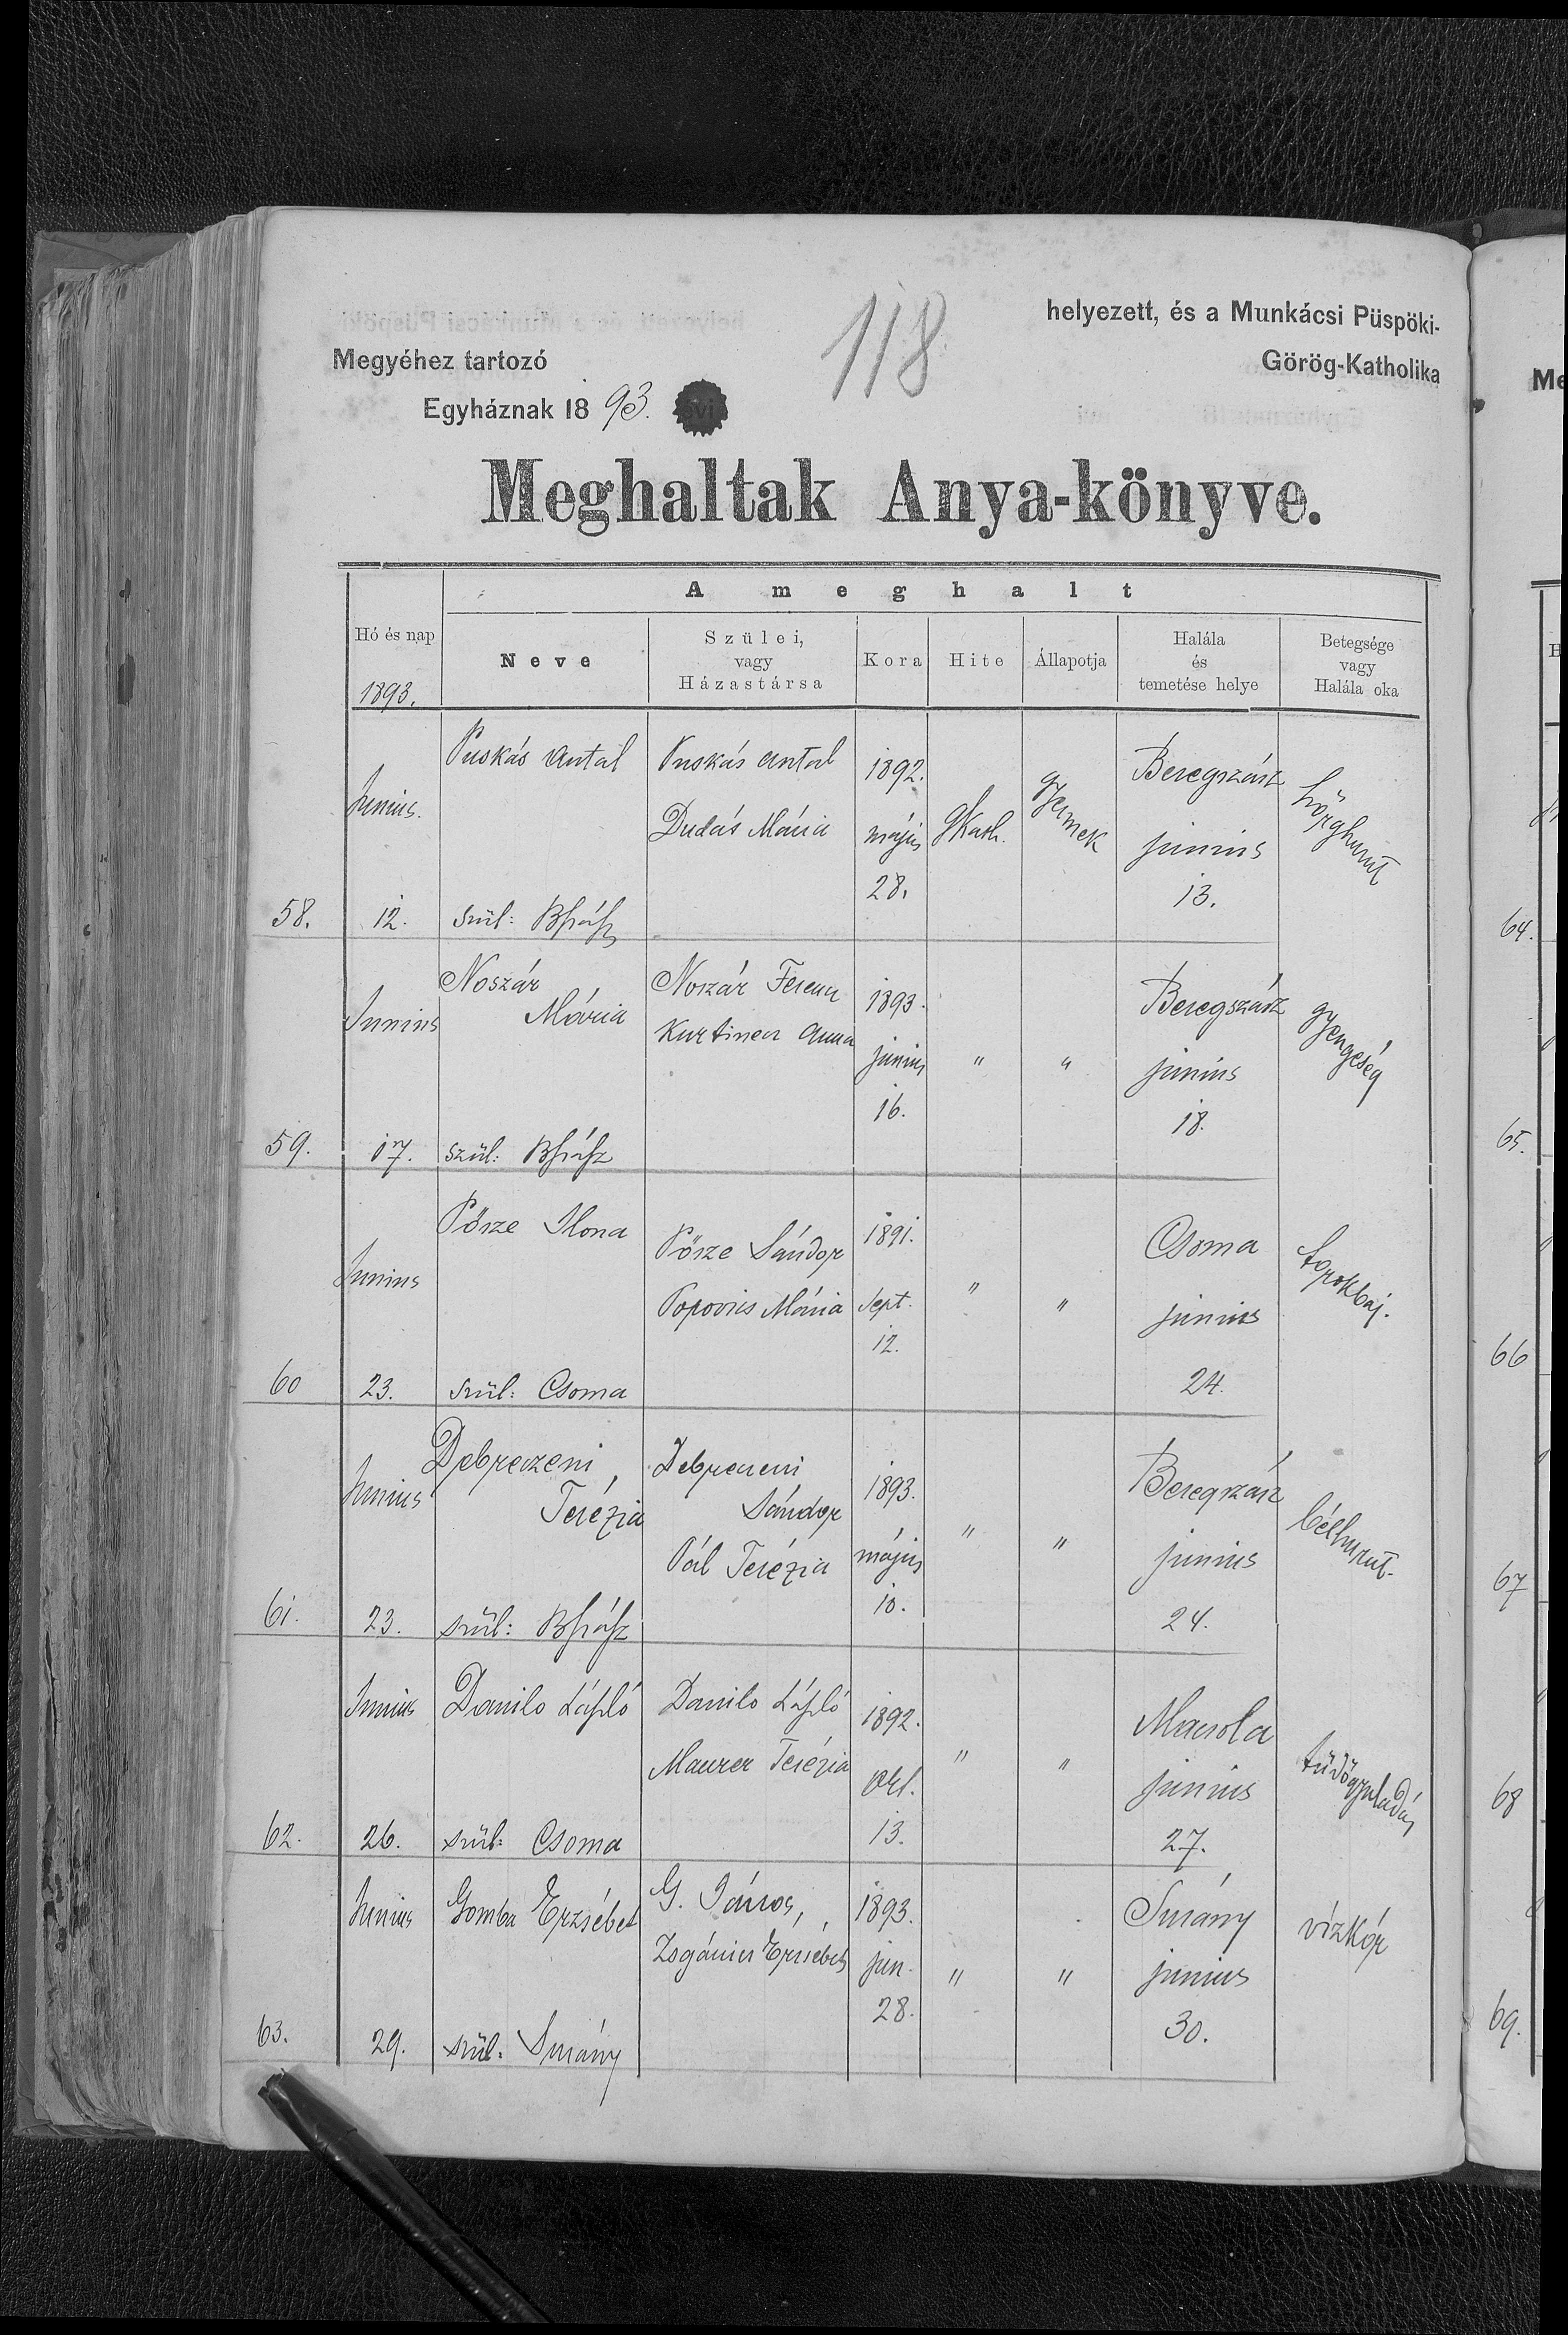 118
helyezett, és a Munkácsi Püspöki-
Megyéhez tartozó
Görög-Katholika
Egyháznak 1893. évi
Meghaltak Anya-könyve.
A meghalt
Hó és nap
1893.
Neve
Szülei,
vagy
Házastársa
Kora
Hite
Állapotja
Halála
és
temetése helye
Betegsége
vagy
Halála oka
58.
Junius.
12.
Puskás Antal
szül: Bszász
Puskás Antal
Dudás Mária
1892.
május
28.
gKath.
gyermek
Beregszász
junius
13.
hörghurut
59.
Junius
17.
Noszár
Mária
szül: Bszász
Noszár Ferencz
Kurtinecz Anna
1893.
junius
16.
"
"
Beregszász
junius
18.
gyengeség
60
Junius
23.
Pősze Ilona
szül: Csoma
Pősze Sándor
Popovics Mária
1891.
Sept.
12.
"
"
Csoma
junius
24.
torokbaj.
61.
Junius
23.
Debreczeni
Terézia
szül: Bszász
Debreczeni
Sándor
Pál Terézia
1893.
május
10.
"
"
Beregszász
junius
24.
bélhurut.
62.
Junius
26.
Danilo László
szül: Csoma
Danilo László
Maurer Terézia
1892.
Okt.
13.
"
"
Macsola
junius
27.
63.
Junius
29.
Gomba Erzsébet
szül. Surány
G. János,
Erzsébet
1893.
jun.
28.
"
"
Surány
junius
30.
vízkór
64.
65.
66
67
68
69.